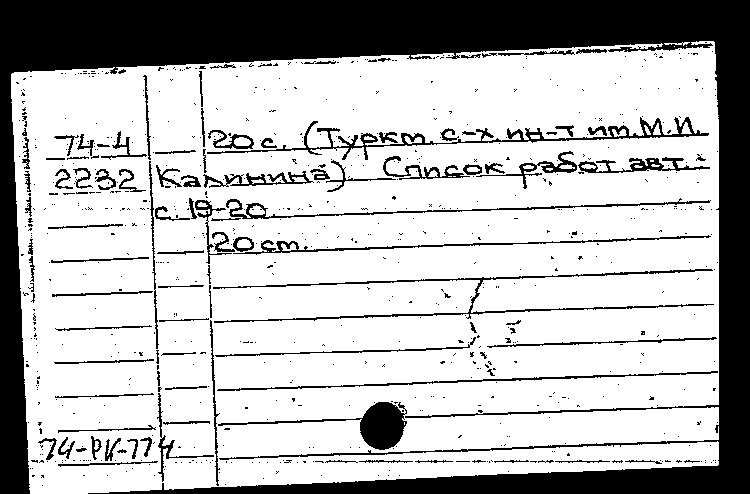 74-4 20 с. (Туркм. с-х ин-т им. М.И.
2232 Калинина) Список работ авт.:
с. 19-20.
20 см.
74-РК-774